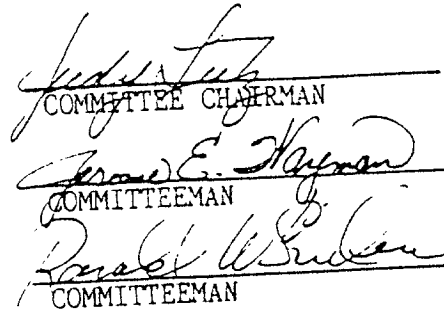 COMMITTEE CHAIRMAN
Jerome E. Wayman
COMMITTEEMAN
Ronald W
COMMITTEEMAN